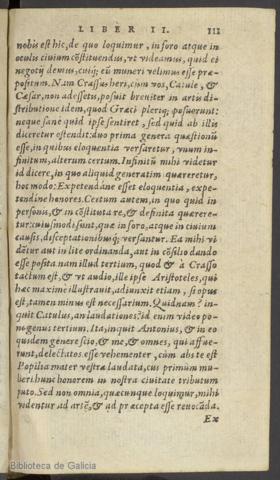 LIBER II. 111
nobis est hic, de quo loquimur, in foro atque in
oculis ciuium cõstituendus, vt videamus, quid ei
negotij demus, cuiq; eũ muneri velimus esse præ-
positum. Nam Crassus heri, cùm vos, Catule, &
Cæsar, non adessetis, posuit breuiter in artis di-
stributione idem, quod Græci pleriq; posuerunt:
neque sanè quid ipse sentiret, sed quid ab illis
diceretur ostendit: duo prima genera quæstionũ
esse, in quibus eloquentia versaretur, vnum in-
finitum, alterum certum. Infinitũ mihi videtur
id dicere, in quo aliquid generatim quæreretur,
hoc modo: Expetendáne esset eloquentia, expe-
tendíne honores. Certum autem, in quo quid in
personis, & in cõstituta re, & definita quærere-
tur: cuiusmodi sunt, quæ in foro, atque in ciuium
causis, disceptationibusq́; versantur. Ea mihi vi
dẽtur aut in lite ordinanda, aut in cõsilio dando
esse posita. nam illud tertium, quod & à Crasso
tactum est, & vt audio, ille ipse Aristoteles, qui
hæc maximè illustrauit, adiunxit etiam, si opus
est, tamen minus est necessarium. Quidnam? in-
quit Catulus, an laudationes? id enim video po-
ni genus tertium. Ita, inquit Antonius, & in eo
quidem genere scio, & me, & omnes, qui affue-
runt, delectatos esse vehementer, cùm abs te est
Popilia mater vestra laudata, cui primùm mu-
lieri hunc honorem in nostra ciuitate tributum
puto. Sed non omnia, quæcunque loquimur, mihi
videntur ad artẽ, & ad præcepta esse reuocãda.
Ex
Biblioteca de Galicia